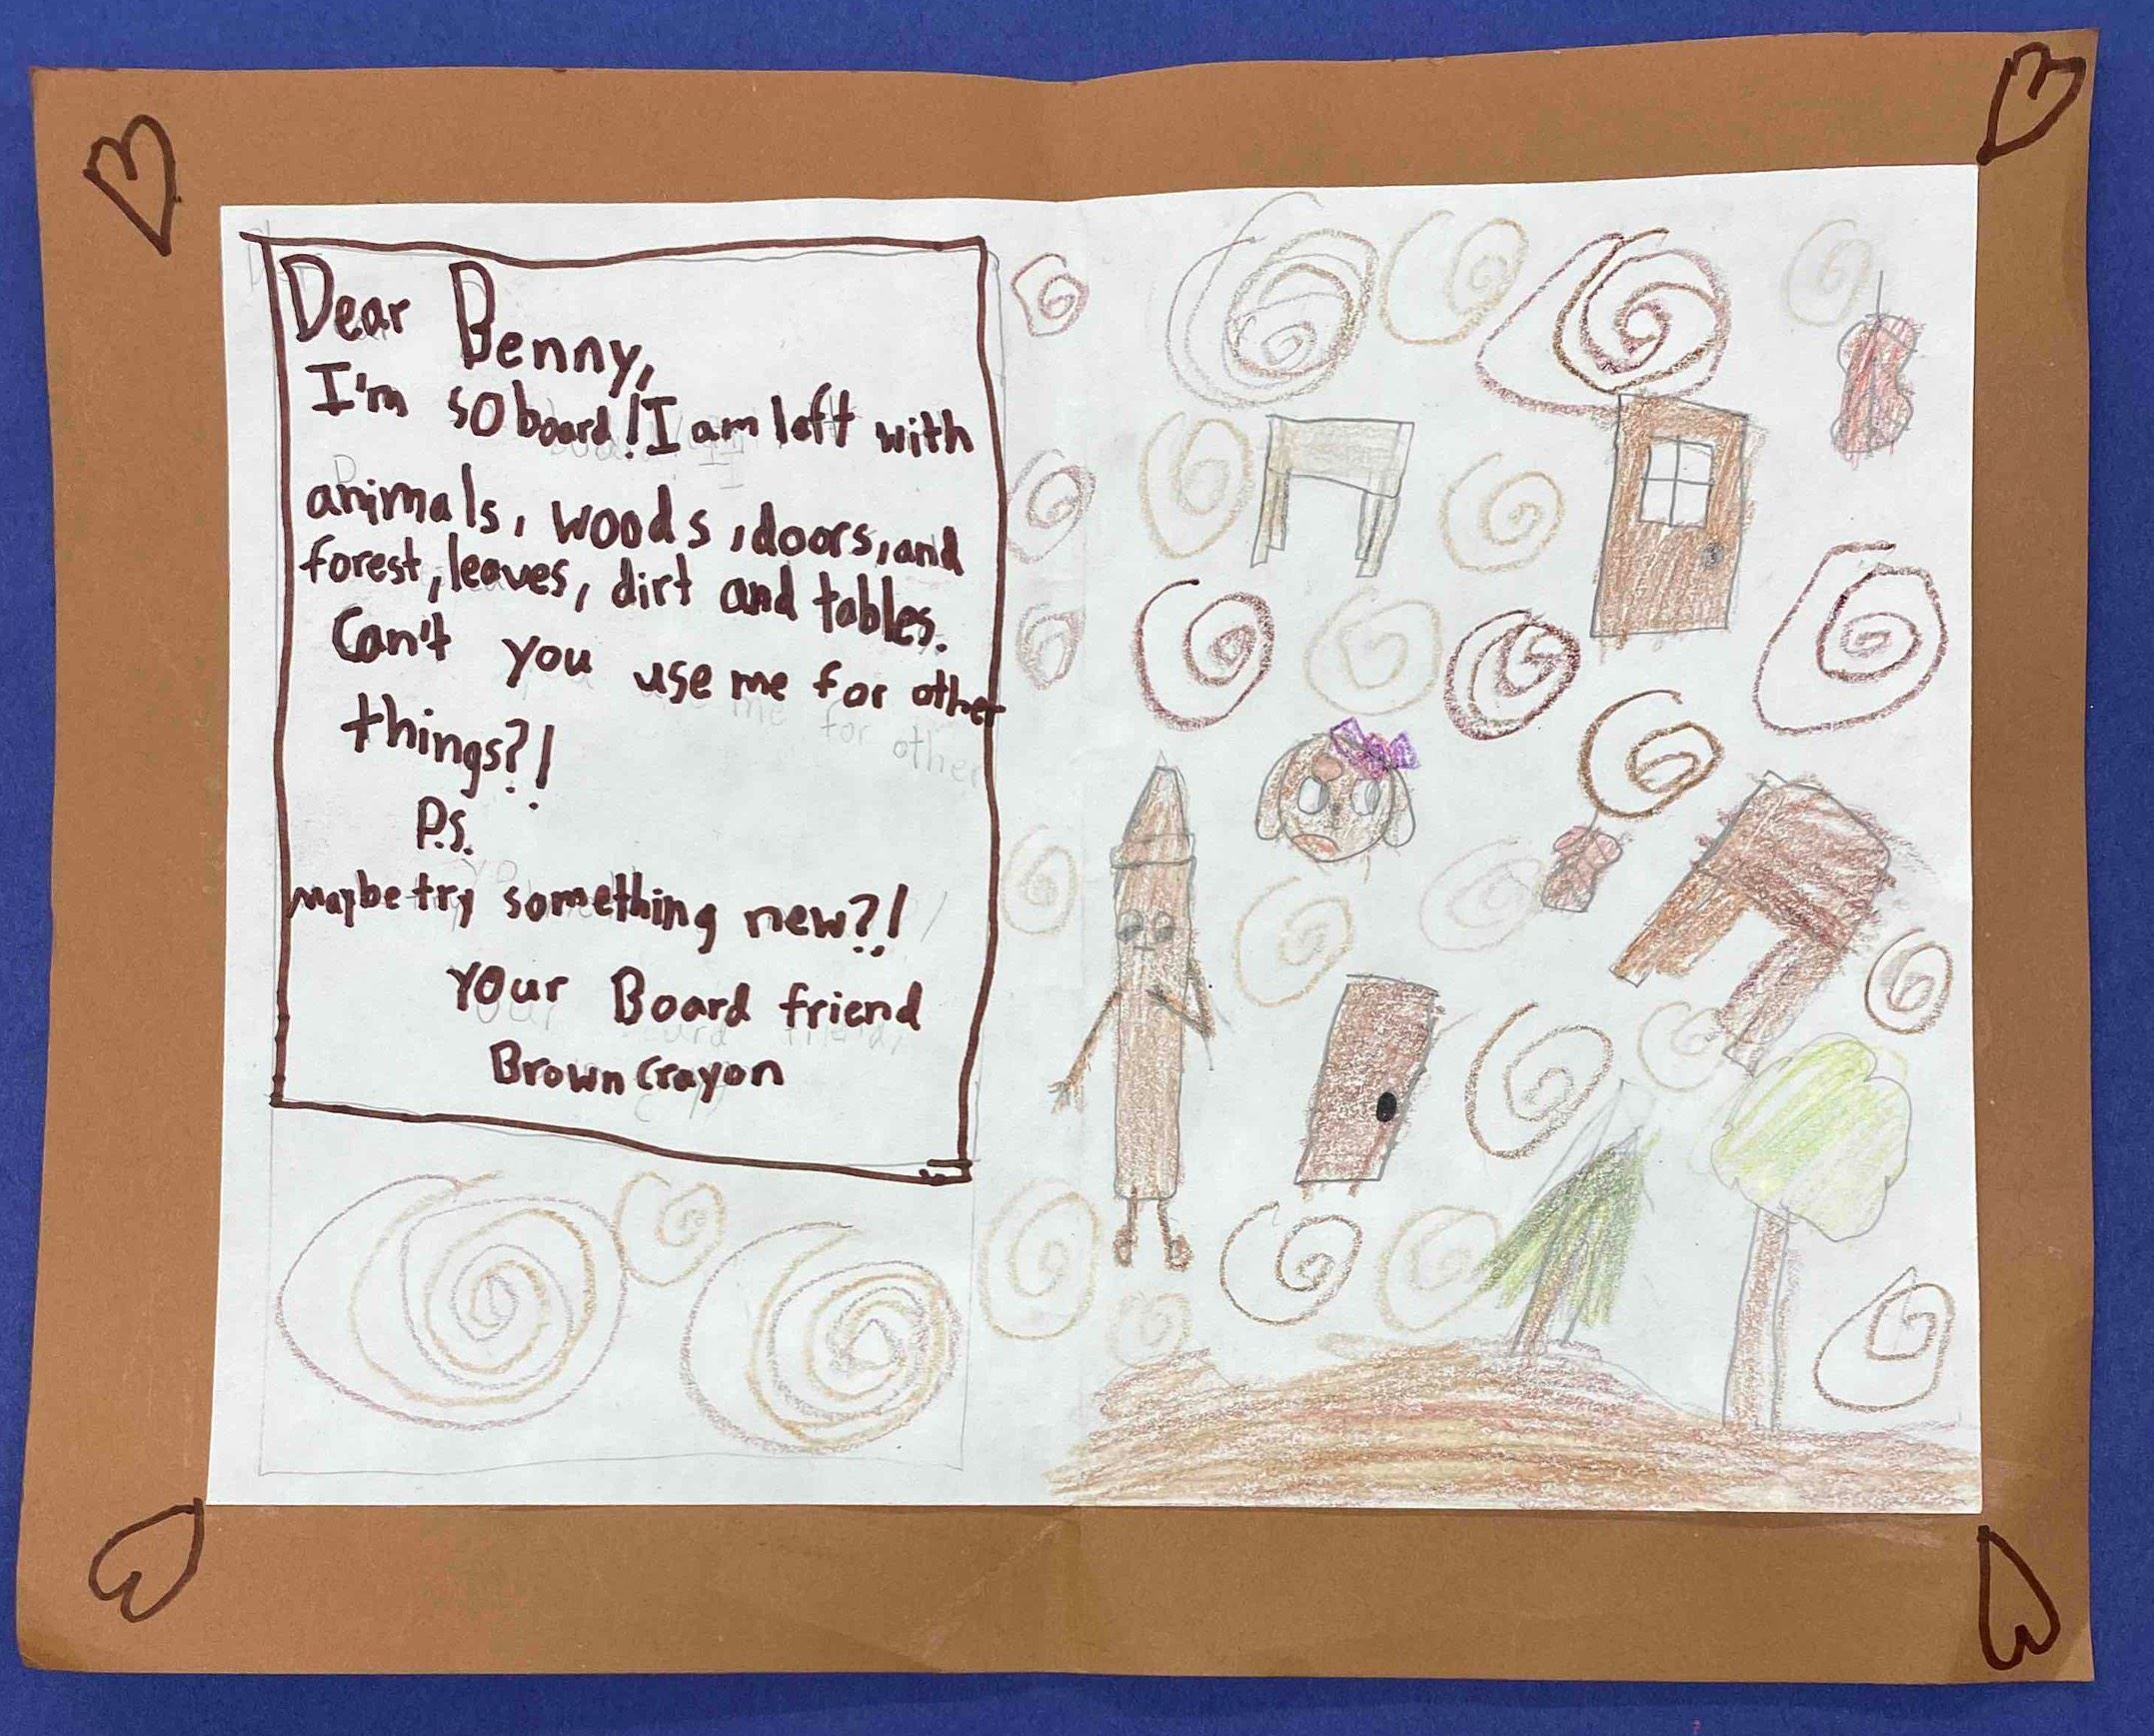 Dear Benny,
I'm so board! I am left with
animals, woods, doors, and
forest, leaves, dirt and tables.
Can't you use me for other
things?!
P.S.
maybe try something new?!
Your Board friend
Brown Crayon